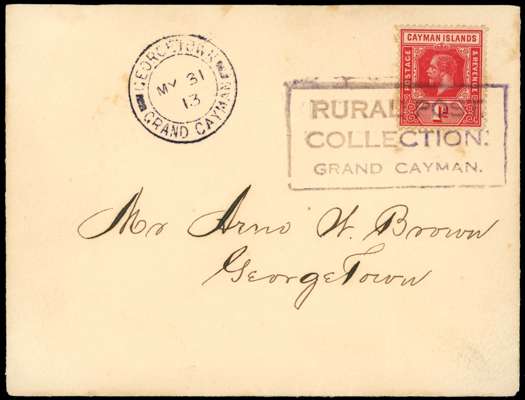 GEORGETOWN
MY 31
13
GRAND CAYMAN
CAYMAN ISLANDS
POSTAGE
& REVENUE
1D
RURAL POST
COLLECTION.
GRAND CAYMAN.
Mr Arno W. Brown
GeorgeTown